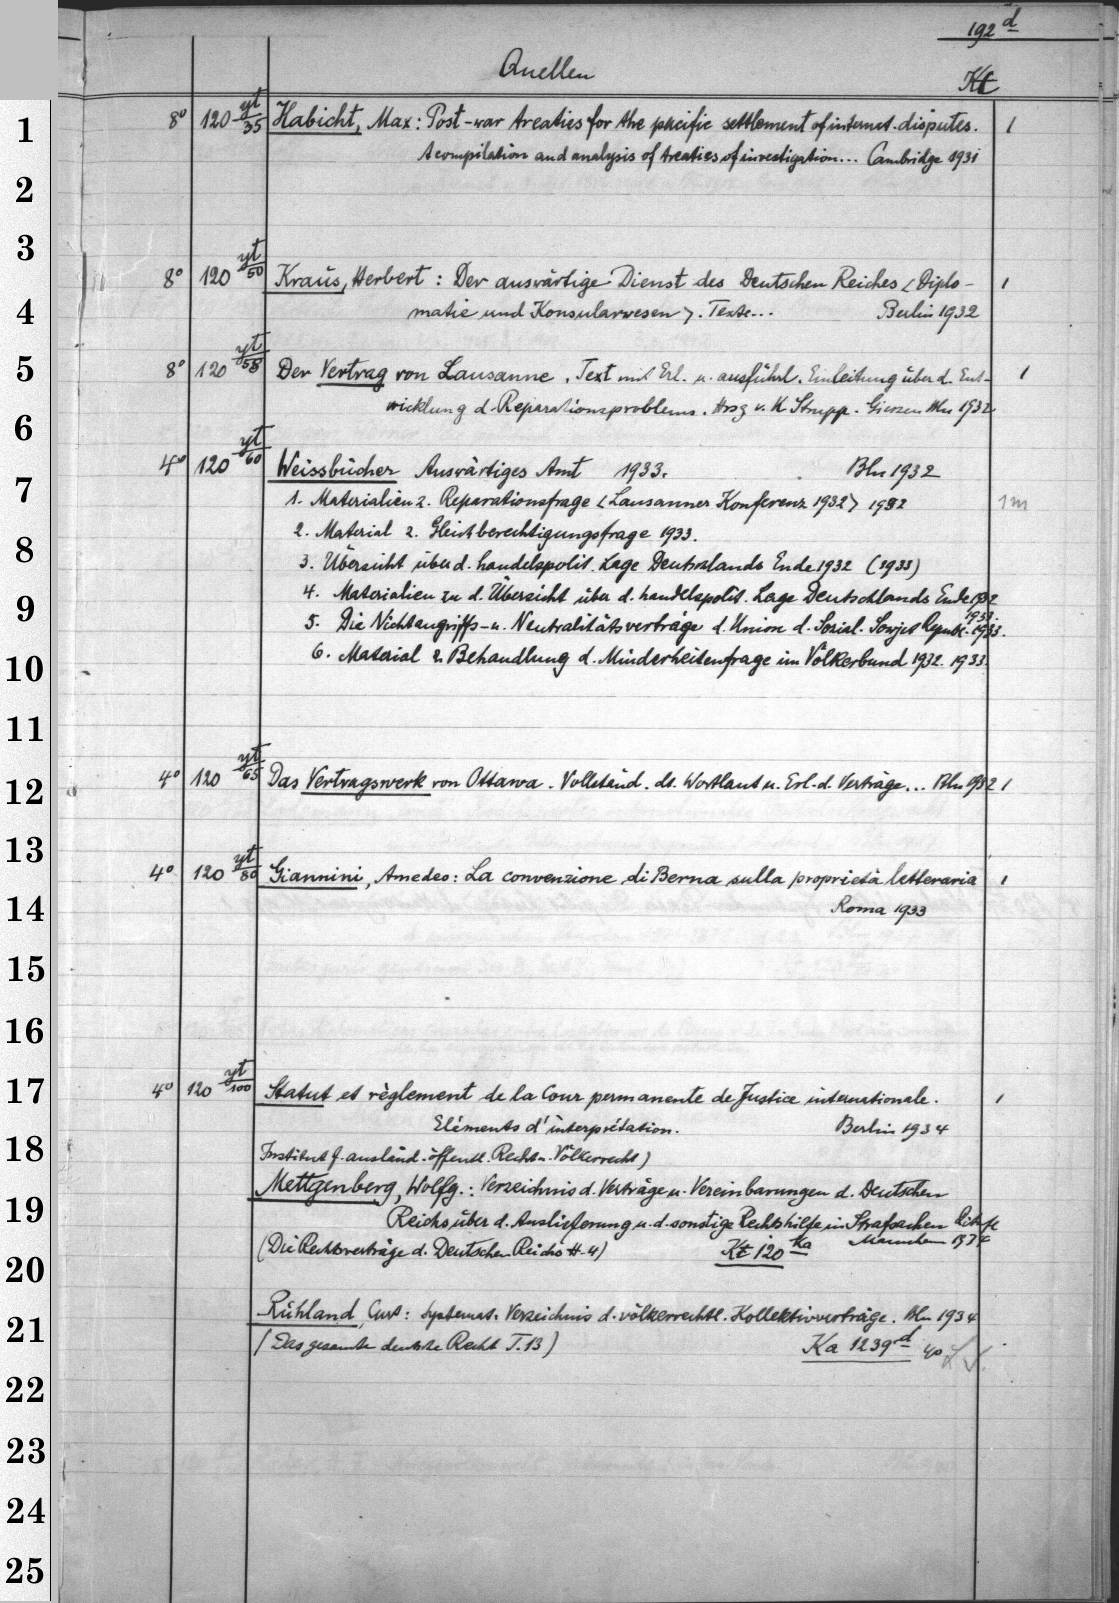 192 d
Quellen
Kt
1 8° 120 yt/35 Habicht, Max: Post-war treaties for the pacific settlement of internat. disputes. 1
A compilation and analysis of treaties of investigation... Cambridge 1931
2
3
8° 120 yt/50 Kraus, Herbert: Der auswärtige Dienst des Deutschen Reiches <Diplo- 1
4 matie und Konsularwesen>. Texte... Berlin 1932
5 8° 120 yt/58 Der Vertrag von Lausanne. Text mit Erl. u. ausführl. Einleitung über d. Ent- 1
wicklung d. Reparationsproblems. Hrsg v. K. Strupp. Giessen 1932
6
4° 120 yt/60 Weissbücher Auswärtiges Amt 1933. Bln 1932
7 1. Materialien z. Reparationsfrage <Lausanner Konferenz 1932> 1932 1 m
2. Material z. Gleichberechtigungsfrage 1933.
8 3. Übersicht über d. handelspolit. Lage Deutschlands Ende 1932 (1933)
4. Materialien zu d. Übersicht über d. handelspolit. Lage Deutschlands Ende 1932
1933.
9 5. Die Nichtangriffs- u. Neutralitätsverträge d. Union d. Sozial. Sowjet Republ. 1933.
10 6. Material z. Behandlung d. Minderheitenfrage im Völkerbund 1932. 1933.
11
12 4° 120 yt/65 Das Vertragswerk von Ottawa. Vollständ. dt. Wortlaut u. Erl. d. Verträge... Bln 1932 1
13
4° 120 yt/80 Giannini, Amedeo: La convenzione di Berna sulla proprietà letteraria 1
14 Roma 1933
15
16
17 4° 120 yt/100 Statut et règlement de la Cour permanente de Justice internationale. 1
Eléments d'interprétation. Berlin 1934
18 Institut f. ausländ. öffentl. Recht u. Völkerrecht)
Mettgenberg, Wolfg.: Verzeichnis d. Verträge u. Vereinbarungen d. Deutschen
19 Reichs über d. Auslieferung u. d. sonstige Rechtshilfe in Strafsachen
(Die Rechtsverträge d. Deutschen Reichs H. 4) Kt 120 ka
20
Rühland, Curt: Systemat. Verzeichnis d. völkerrechtl. Kollektivverträge. Bln 1934
21 (Das gesamte deutsche Recht T. 13) Ka 1239 d 4°
22
23
24
25